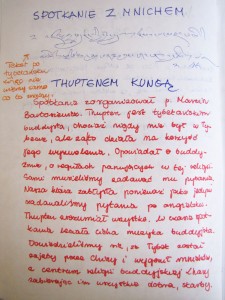 SPOTKANIE Z MNICHEM
THUPTENEM KUNGĄ
Spotkanie zorganizował p. Marcin
Thupten jest tybetańskim
buddystą, chociaż nigdy nie był w Ty-
becie, ale jako działa na korzyść
jego wyzwolenia. Opowiadał o buddy-
zmie, o regułach panujących w tej religii.
Sami musieliśmy zadawać mu pytania.
Nasza klasa zabłysła ponieważ jako jedyni
zadawaliśmy pytania po angielsku.
Thupten zrozumiał wszystko. W czasie spot-
kania leciała cicha muzyka buddyjska.
Dowiedzieliśmy się, że Tybet został
zajęty przez Chiny i wygonił mnichów,
a centrum religii buddyjskiej Lhasy
zabierają im wszystkie dobra, skarby.